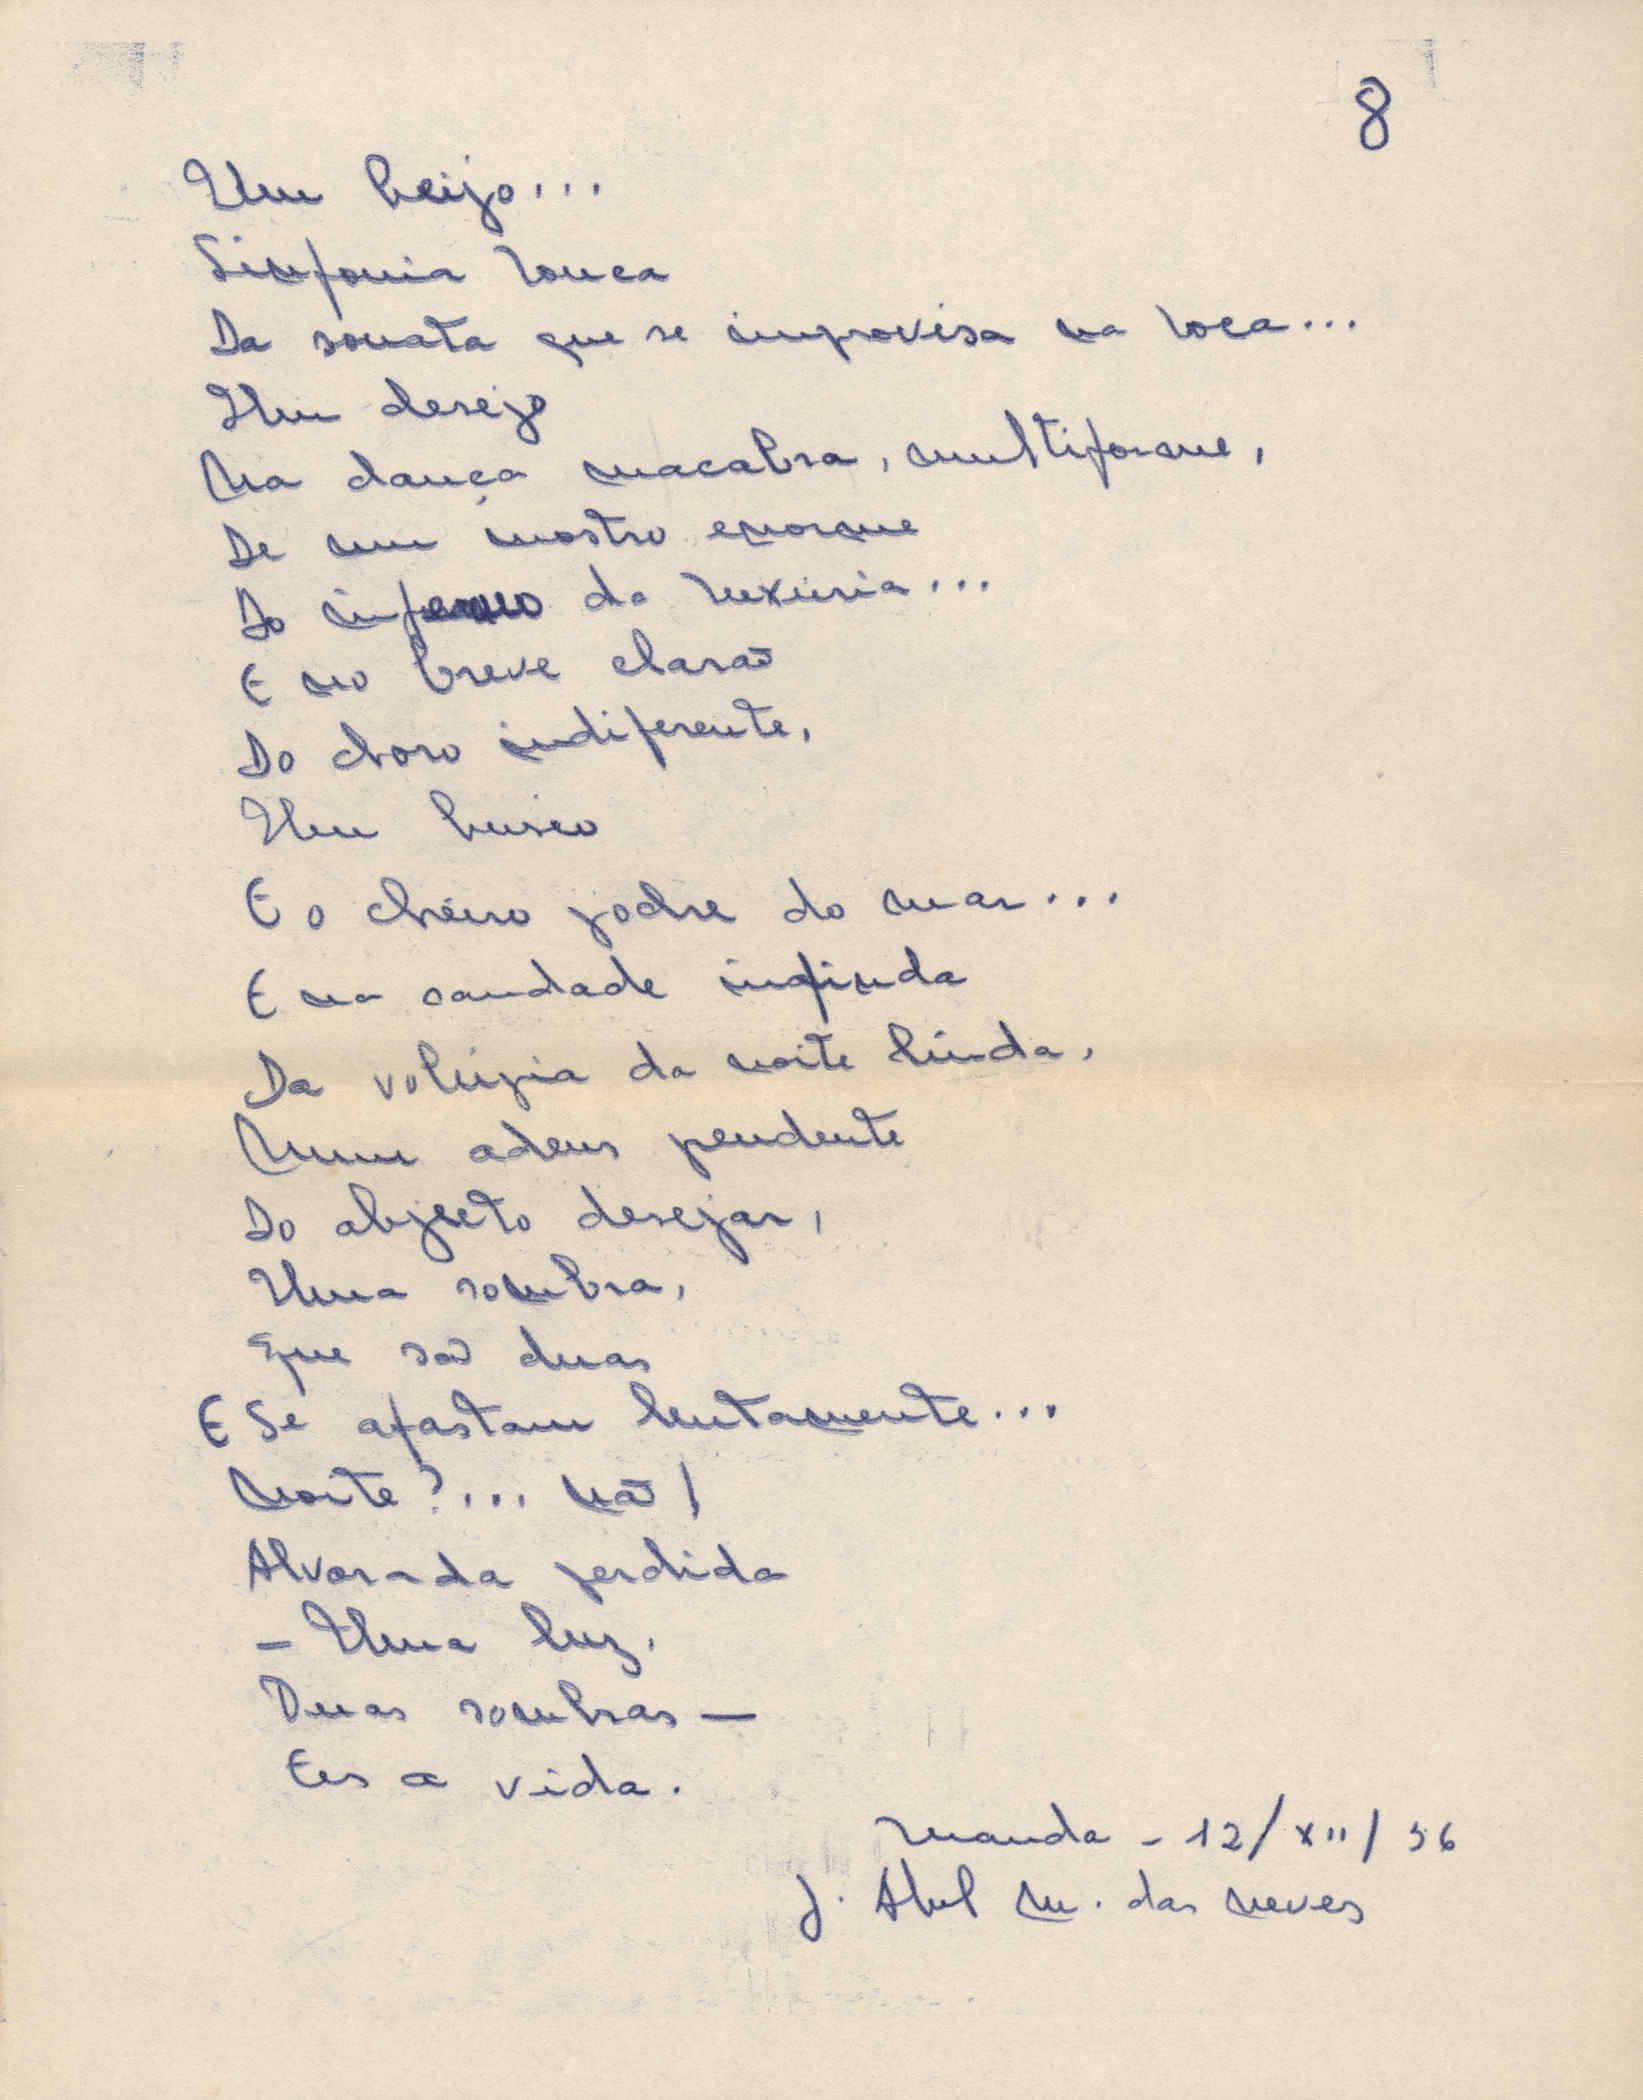 8
Um beijo...
Sinfonia louca
Da sonata que se improvisa na loca...
Um desejo
Na dança macabra, multiforme,
De um mostro enorme
Do inferno da luxúria...
E no breve clarão
Do choro indiferente,
Um búsio
E o cheiro podre do mar...
E na saudade infinda
Da volúpia da noite linda,
Num adeus pendente
Do abjecto desejar,
Uma sombra,
Que são duas
E se afastam lentamente...
Noite?... Não!
Alvorada perdida
- Uma luz.
Duas sombras -
Eis a vida.
Luanda - 12/XII/56
J. Abel M. das Neves